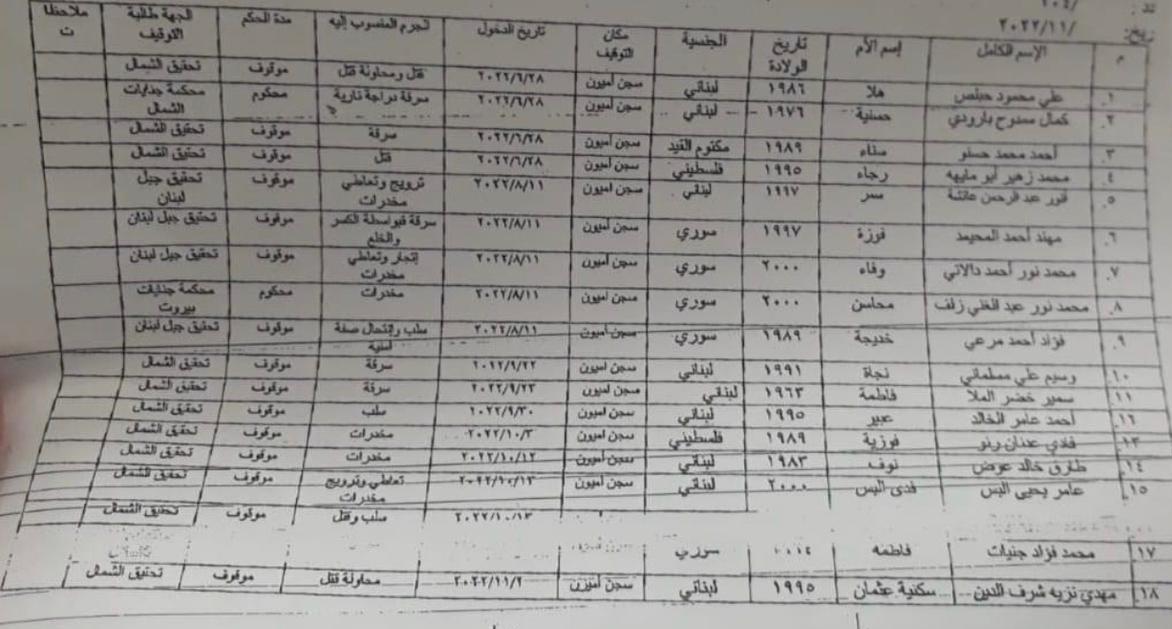 /١٠٤
تاريخ: /٢٠٢٢/١١
م الإسم الكامل إسم الأم تاريخ الولادة الجنسية مكان التوقيف تاريخ الدخول الجرم المنسوب إليه مدة الحكم الجهة طالبة التوقيف ملاحظات
١. علي محمود حبلص هلا ١٩٨٦ لبناني سجن أميون ٢٠٢٢/٦/٢٨ قتل ومحاولة قتل موقوف تحقيق الشمال
٢. كمال ممدوح بارودي حسنية ١٩٧٦ لبناني سجن أميون ٢٠٢٢/٦/٢٨ سرقة دراجة نارية محكوم محكمة جنايات الشمال
٣. أحمد محمد حسنو سناء ١٩٨٩ مكتوم القيد سجن أميون ٢٠٢٢/٦/٢٨ سرقة موقوف تحقيق الشمال
٤. محمد زهير أبو مايهه رجاء ١٩٩٥ فلسطيني سجن أميون ٢٠٢٢/٦/٢٨ قتل موقوف تحقيق الشمال
٥. عبد الرحمن عائشة سمر ١٩٩٧ لبناني سجن اميون ٢٠٢٢/٨/١١ ترويج وتعاطي مخدرات موقوف تحقيق جبل لبنان
٦. مهند أحمد المحيمد فوزة ١٩٩٧ سوري سجن أميون ٢٠٢٢/٨/١١ سرقة بواسطة الكسر والخلع موقوف تحقيق جبل لبنان
٧. محمد نور أحمد دالاتي وفاء ٢٠٠٠ سوري سجن أميون ٢٠٢٢/٨/١١ إتجار وتعاطي مخدرات موقوف تحقيق جبل لبنان
٨. محمد نور عبد الغني زلف محاسن ٢٠٠٠ سوري سجن اميون ٢٠٢٢/٨/١١ مخدرات محكوم محكمة جنايات بيروت
٩. فؤاد أحمد مرعي خديجة ١٩٨٩ سوري سجن أميون ٢٠٢٢/٨/١١ سلب وإنتحال صفة أمنية موقوف تحقيق جبل لبنان
١٠. وسيم علي مسلماني نجاة ١٩٩١ لبناني سجن اميون ٢٠٢٢/٩/٢٢ سرقة موقوف تحقيق الشمال
١١. سمير خضر الملا فاطمة ١٩٦٣ لبناني سجن اميون ٢٠٢٢/٩/٢٣ سرقة موقوف تحقيق الشمال
١٢. أحمد عامر الخالد عبير ١٩٩٥ لبناني سجن اميون ٢٠٢٢/٩/٣٠ سلب موقوف تحقيق الشمال
١٣. فادي عدنان رنو فوزية ١٩٨٩ فلسطيني سجن اميون ٢٠٢٢/١٠/٣ مخدرات موقوف تحقيق الشمال
١٤. طارق خالد عوض نوف ١٩٨٣ لبناني سجن أميون ٢٠٢٢/١٠/١٢ مخدرات موقوف تحقيق الشمال
١٥. عامر يحيى البس فدى البس ٢٠٠٠ لبناني سجن أميون ٢٠٢٢/١٠/١٣ تعاطي وترويج مخدرات موقوف تحقيق الشمال
٢٠٢٢/١٠/١٣ سلب وقتل موقوف تحقيق الشمال
١٧ محمد فؤاد جنيات فاطمه سوري
١٨ مهدي نزيه شرف الدين سكنية عثمان ١٩٩٥ لبناني سجن أميون ٢٠٢٢/١١/٢ محاولة قتل موقوف تحقيق الشمال